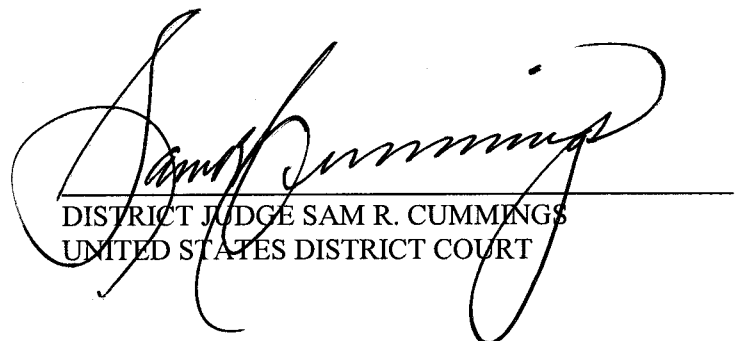 Sam R Cummings
DISTRICT JUDGE SAM R. CUMMINGS
UNITED STATES DISTRICT COURT